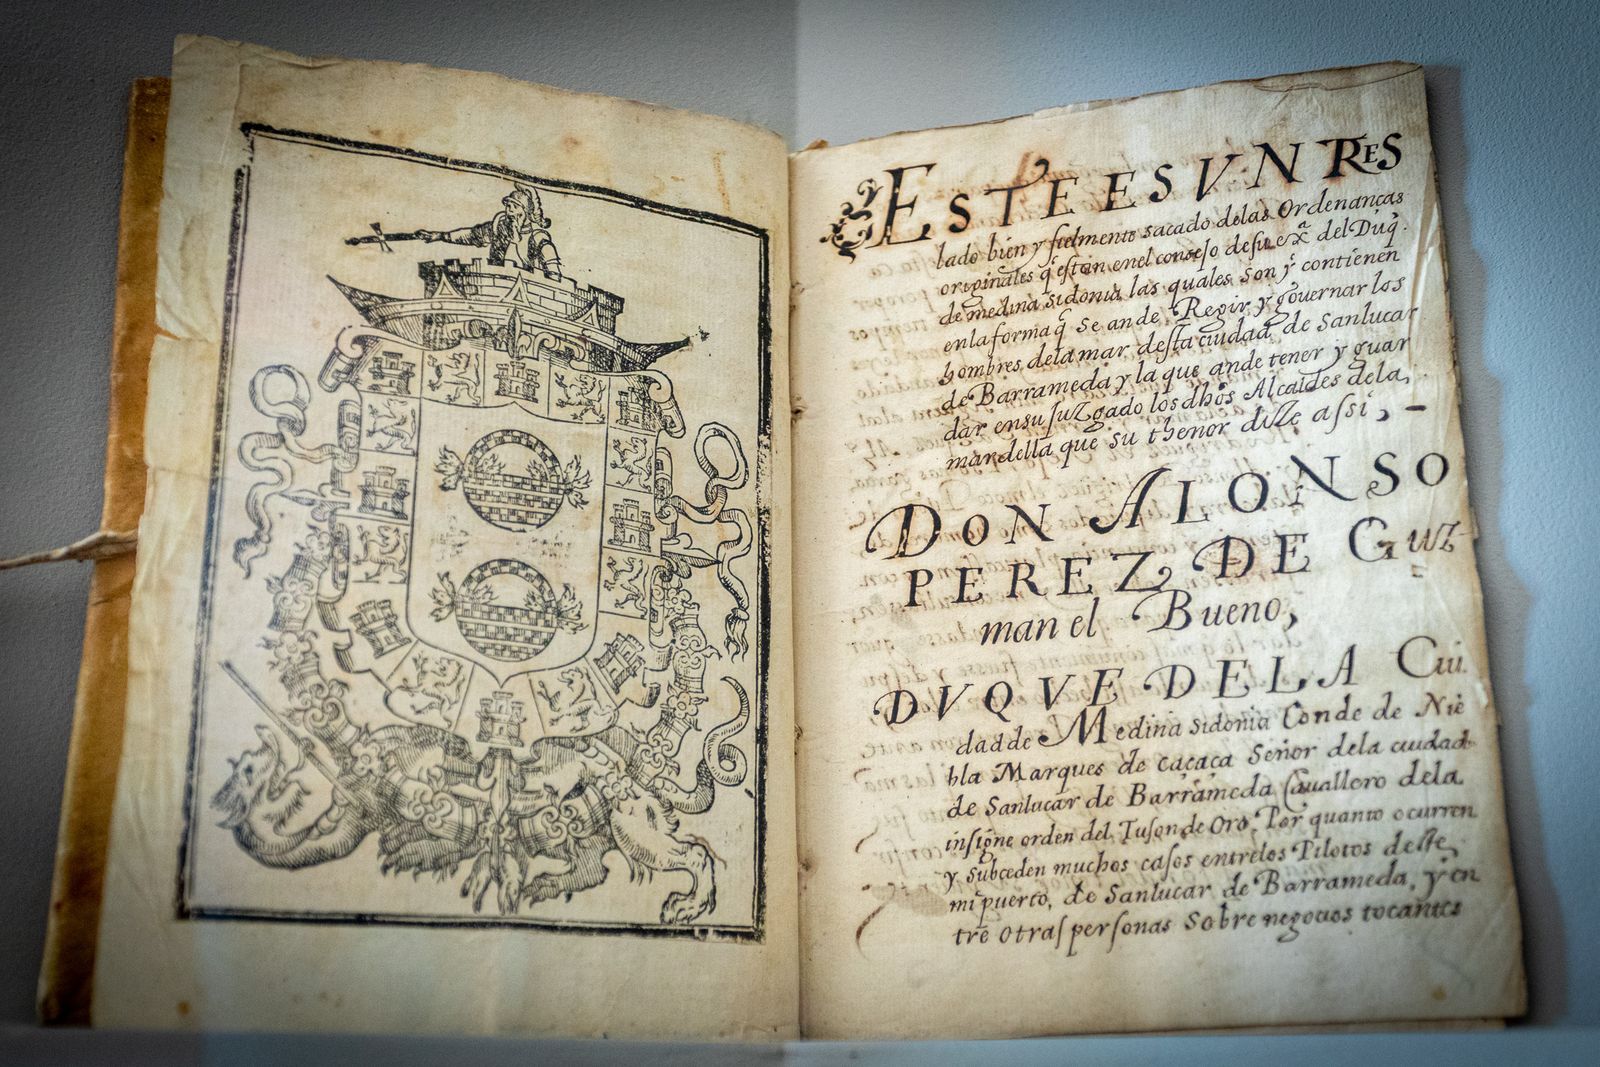 ESTE ES VN RES
lado bien y fielmente sacado delas Ordenanças
originales q̃ estan enel consejo de su exª del Duq̃.
de medina sidonia las quales son y contienen
enla forma q̃ se an de Regir y governar los
hombres dela mar desta ciudad de Sanlucar
de Barrameda y la que ande tener y guar
dar en su juzgado los dhos Alcaides dela
mar della que su thenor dize assi, –
DON ALONSO
PEREZ DE GUZ-
man el Bueno,
DVQVE DE LA Ciu.
dad de Medina Sidonia Conde de Nie
bla Marques de caçaça Señor dela ciudad
de Sanlucar de Barrameda Cavallero dela
insigne orden del Tuson de Oro, Por quanto ocurren
y subceden muchos casos entrelos Pilotos deste
mi puerto, de Sanlucar de Barrameda, y en
tre otras personas sobre negocios tocantes